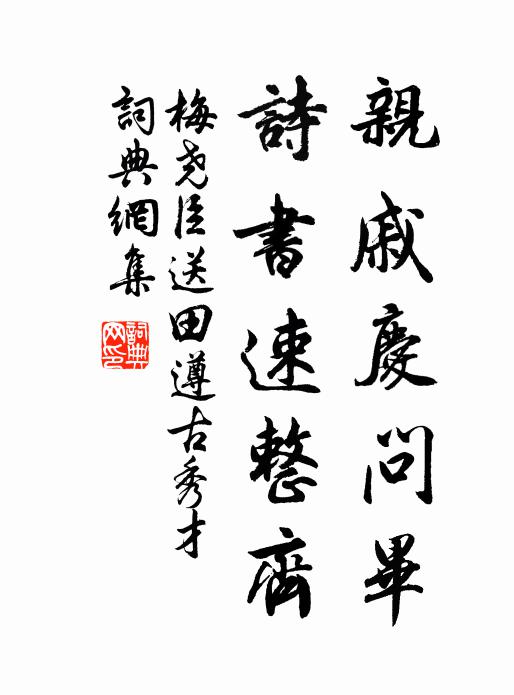 親戚慶問畢
詩書速整齊
梅尧臣送田遵古秀才
詞典網集
詞典网印